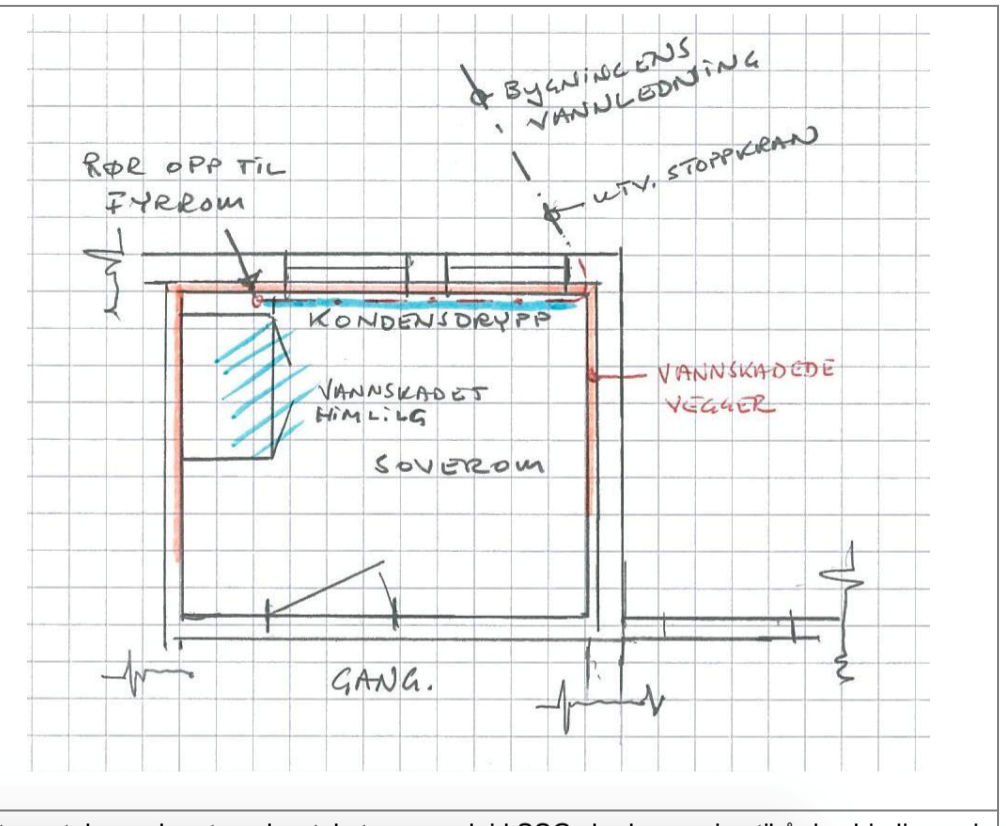 BYGNINGENS
VANNLEDNING
UTV. STOPPKRAN
RØR OPP TIL
FYRROM
KONDENSDRYPP
VANNSKADET
HIMLILG
VANNSKADEDE
VEGGER
SOVEROM
GANG.